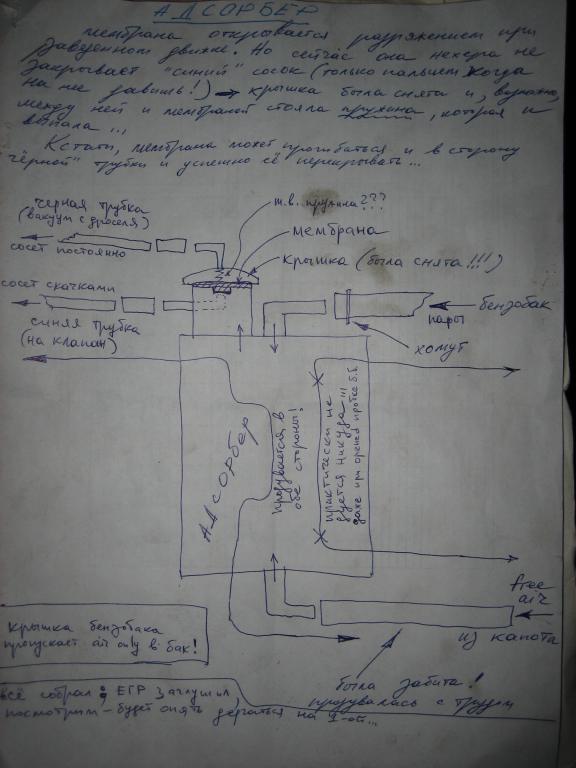 АДСОРБЕР
мембрана открывается разряжением при
заведенном движке. Но сейчас она нехера не
закрывает "синий" сосок (только пальцем когда
на не давишь!) → крышка была снята и, видимо,
между ней и мембраной стояла пружина, которая и
выпала...
Кстати, мембрана может прогибаться и в сторону
"чёрной" трубки и успешно её перекрывать...
т.в. пружина???
мембрана
крышка (была снята!!!)
черная трубка
(вакуум с дроселя)
сосет постоянно
сосет скачками
синяя трубка
(на клапан)
бензобак
пары
хомут
АДСОРБЕР
продувается в
обе стороны!
практически не
дуется никуда!!!
даже при opened пробке б.б.
free
air
из капота
была забита!
продувалась с трудом
крышка бензобака
пропускает air only в бак!
всё собрал; ЕГР заглушил,
посмотрим – будет опять дергаться на 1-ой...